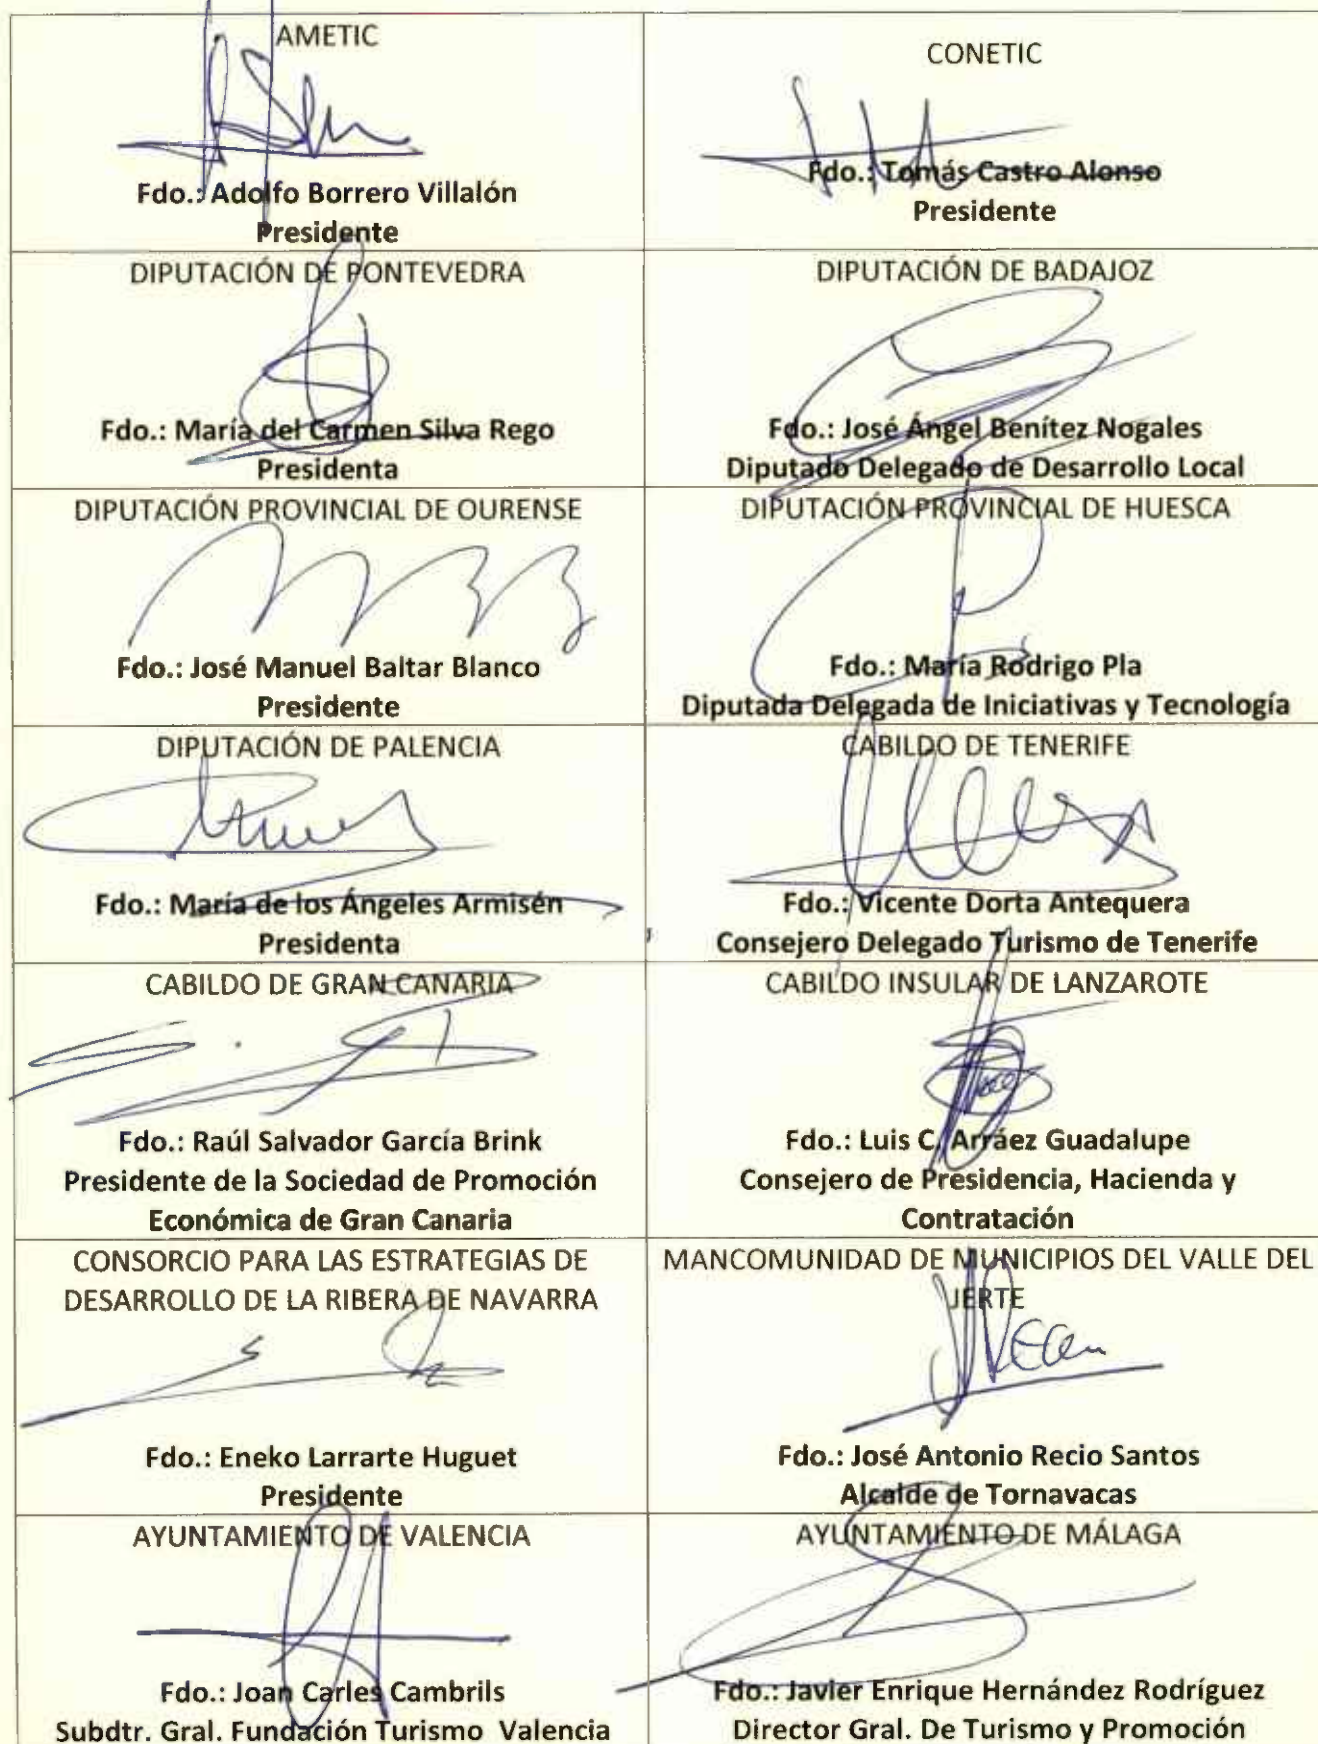 AMETIC
Fdo.: Adolfo Borrero Villalón
Presidente
CONETIC
Fdo.: Tomás Castro Alonso
Presidente
DIPUTACIÓN DE PONTEVEDRA
Fdo.: María del Carmen Silva Rego
Presidenta
DIPUTACIÓN DE BADAJOZ
Fdo.: José Ángel Benítez Nogales
Diputado Delegado de Desarrollo Local
DIPUTACIÓN PROVINCIAL DE OURENSE
Fdo.: José Manuel Baltar Blanco
Presidente
DIPUTACIÓN PROVINCIAL DE HUESCA
Fdo.: María Rodrigo Pla
Diputada Delegada de Iniciativas y Tecnología
DIPUTACIÓN DE PALENCIA
Fdo.: María de los Ángeles Armisén
Presidenta
CABILDO DE TENERIFE
Fdo.: Vicente Dorta Antequera
Consejero Delegado Turismo de Tenerife
CABILDO DE GRAN CANARIA
Fdo.: Raúl Salvador García Brink
Presidente de la Sociedad de Promoción
Económica de Gran Canaria
CABILDO INSULAR DE LANZAROTE
Fdo.: Luis C. Arráez Guadalupe
Consejero de Presidencia, Hacienda y
Contratación
CONSORCIO PARA LAS ESTRATEGIAS DE
DESARROLLO DE LA RIBERA DE NAVARRA
Fdo.: Eneko Larrarte Huguet
Presidente
MANCOMUNIDAD DE MUNICIPIOS DEL VALLE DEL
JERTE
Fdo.: José Antonio Recio Santos
Alcalde de Tornavacas
AYUNTAMIENTO DE VALENCIA
Fdo.: Joan Carles Cambrils
Subdtr. Gral. Fundación Turismo Valencia
AYUNTAMIENTO DE MÁLAGA
Fdo.: Javier Enrique Hernández Rodríguez
Director Gral. De Turismo y Promoción